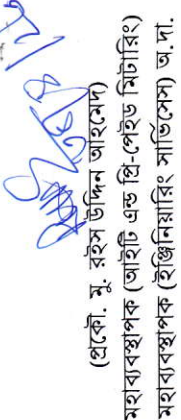 (প্রকৌ. মু. রইস উদ্দিন আহমেদ)
মহাব্যবস্থাপক (আইটি এন্ড প্রি-পেইড মিটারিং)
মহাব্যবস্থাপক (ইঞ্জিনিয়ারিং সার্ভিসেস) অ.দা.